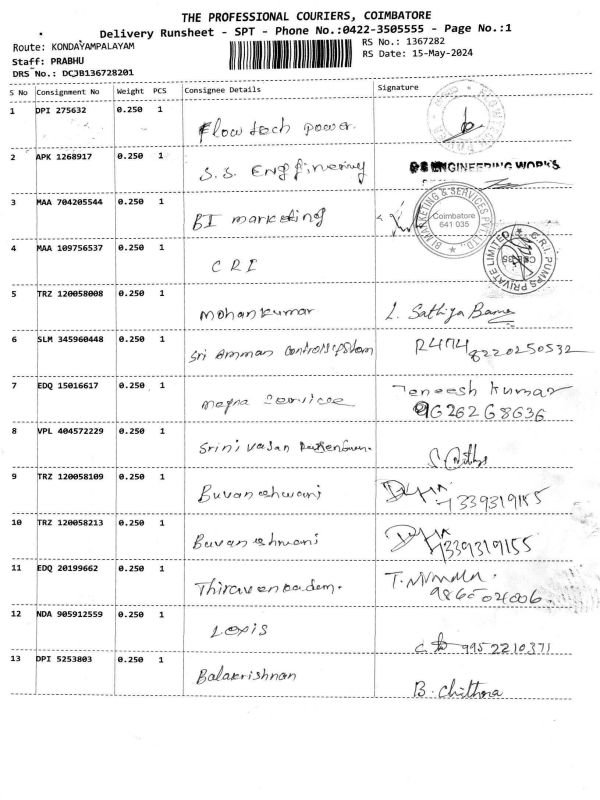 THE PROFESSIONAL COURIERS, COIMBATORE
Delivery Runsheet - SPT - Phone No.:0422-3505555 - Page No.:1
Route: KONDAYAMPALAYAM RS No.: 1367282
Staff: PRABHU RS Date: 15-May-2024
DRS No.: DCJB136728201
S No Consignment No Weight PCS Consignee Details Signature
1 DPI 275632 0.250 1 Flowtech power.
2 APK 1268917 0.250 1 S.S. Engfineering ENGINEERING WORKS
3 MAA 704205544 0.250 1 BI marketing BI MARKETING & SERVICES PVT LTD Coimbatore 641 035
4 MAA 109756537 0.250 1 CRI C.R.I. PUMPS PRIVATE LIMITED
5 TRZ 120058008 0.250 1 Mohankumar L. Sathiya Bama
6 SLM 345960448 0.250 1 Sri Amman 8220250532
7 EDQ 15016617 0.250 1 Magna Service Teneesh Kumar
9626268636
8 VPL 404572229 0.250 1 Srinivasan
9 TRZ 120058109 0.250 1 Buvaneshwari 7339319155
10 TRZ 120058213 0.250 1 Buvaneshwari 7339319155
11 EDQ 20199662 0.250 1
12 NDA 905912559 0.250 1 Lexis 9952210371
13 DPI 5253803 0.250 1 Balakrishnan B. Chithra